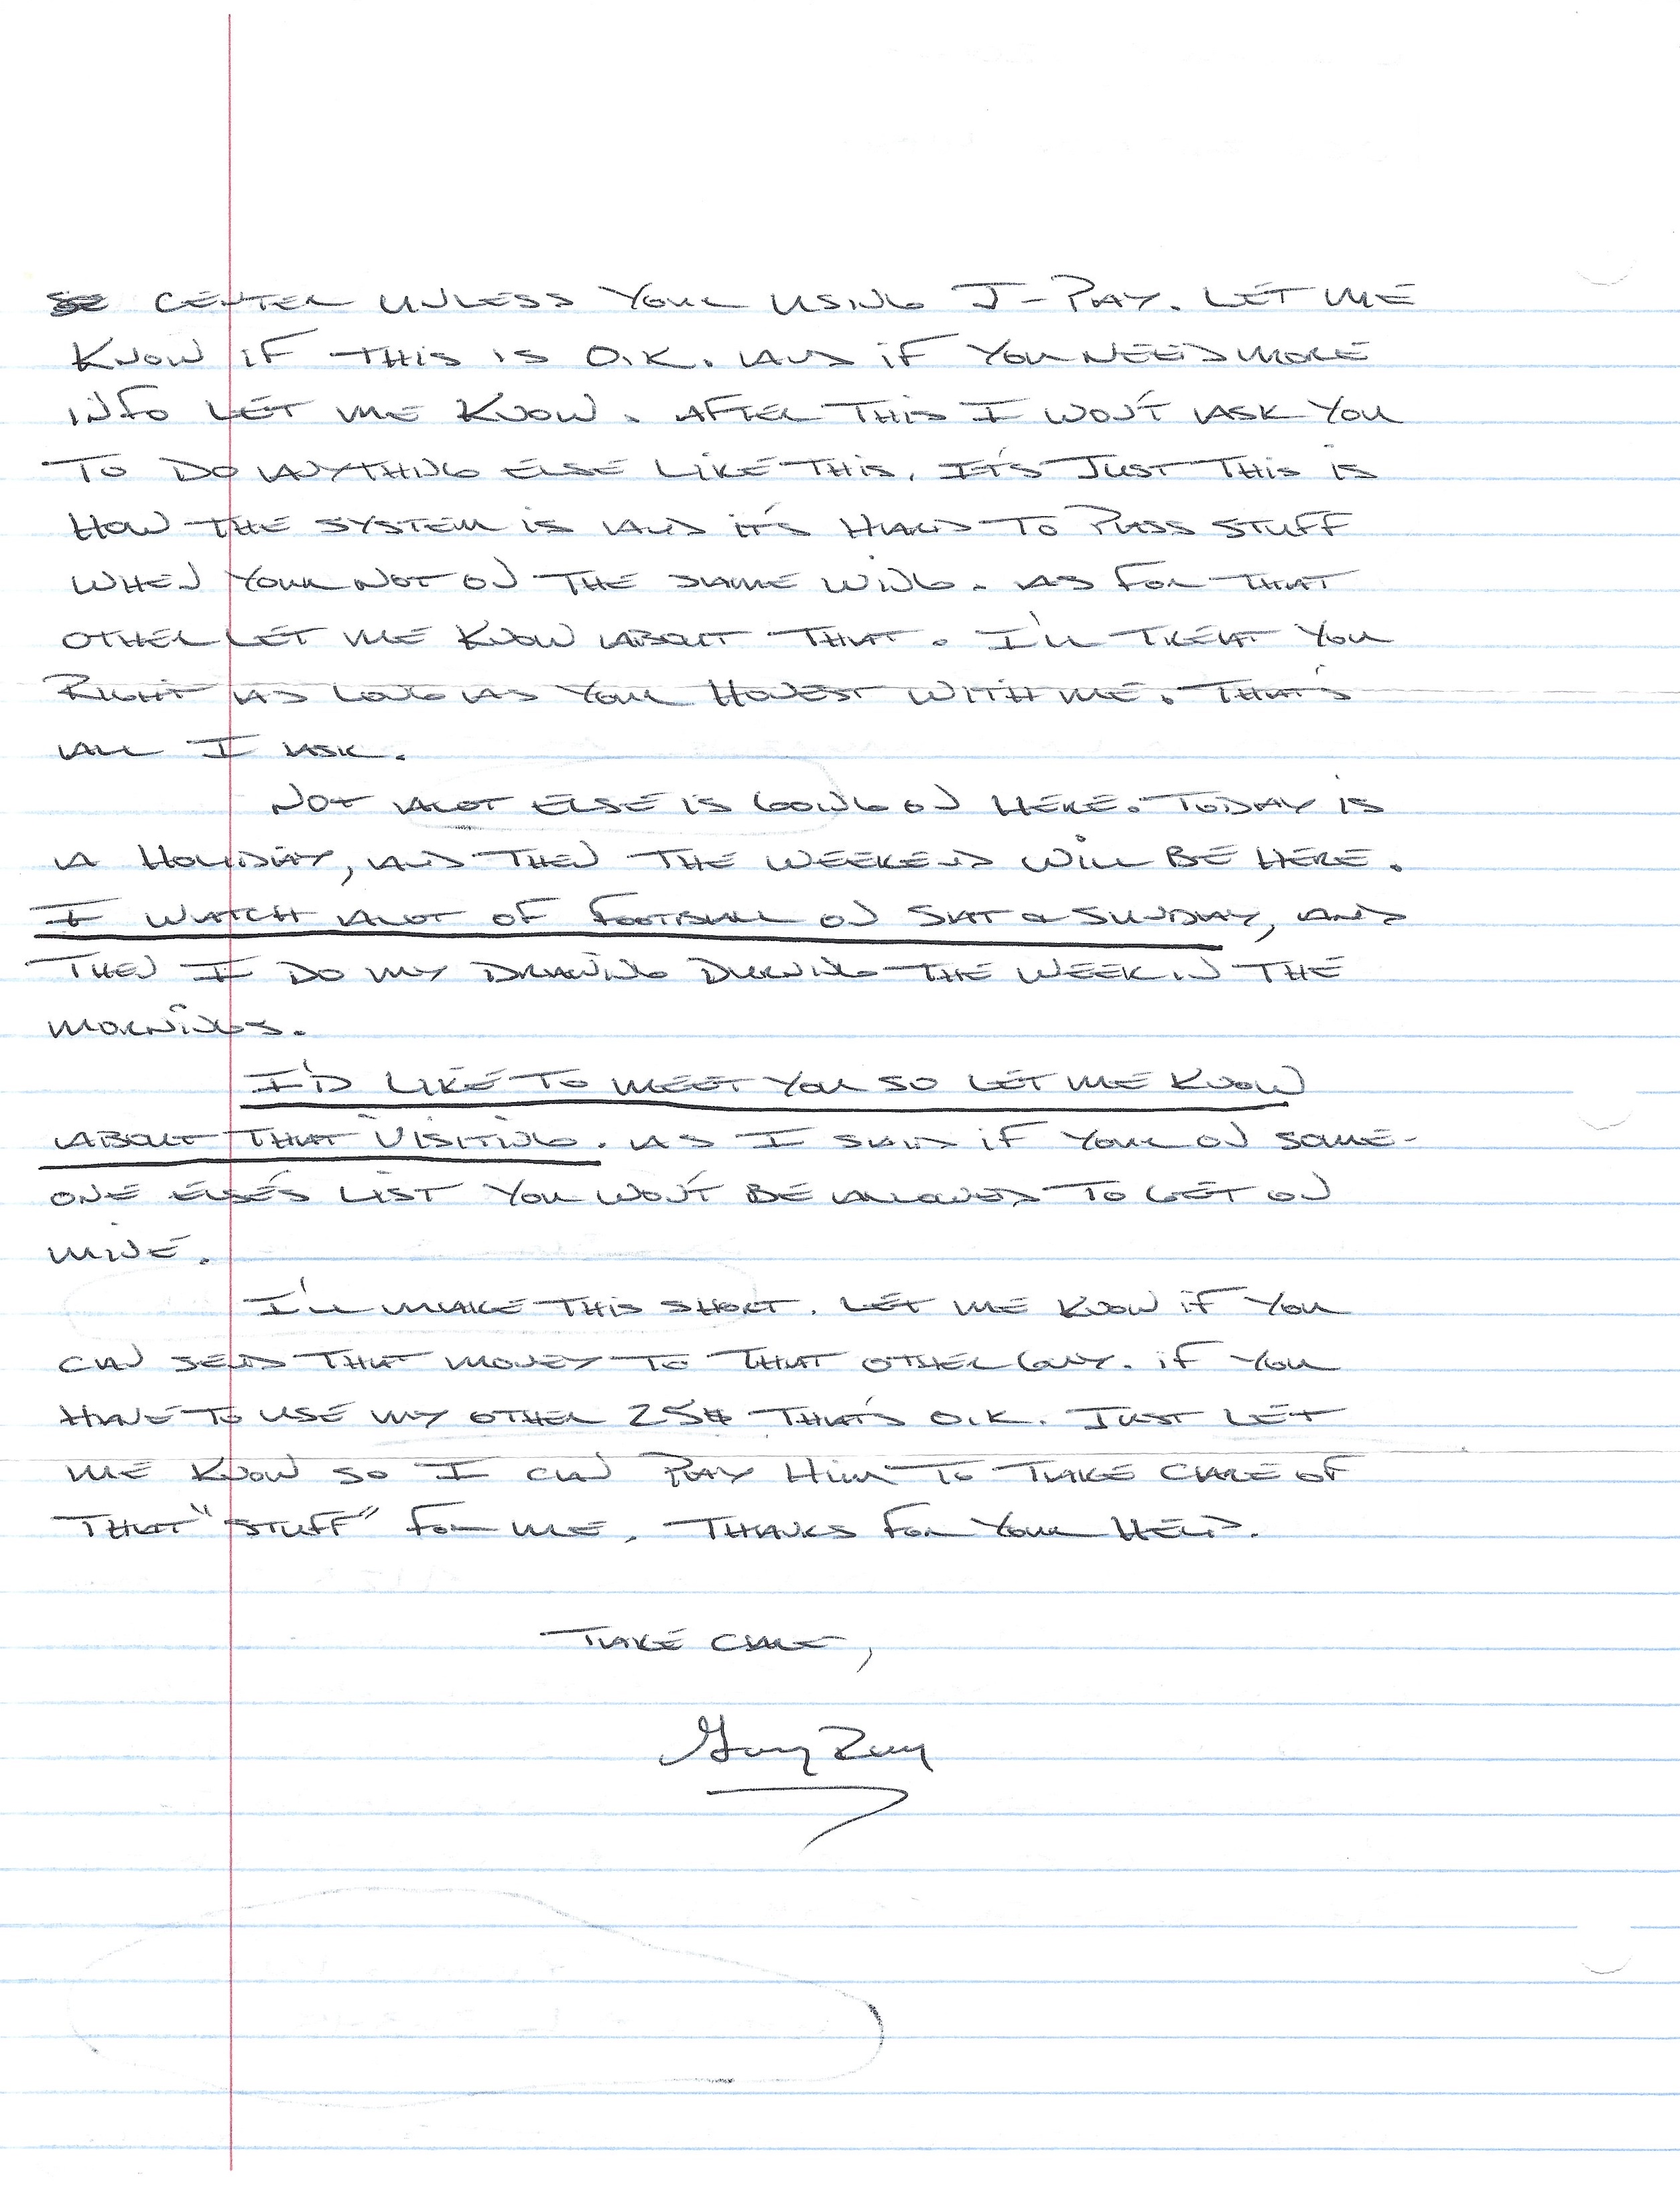 CENTER UNLESS YOUR USING J-PAY. LET ME
KNOW IF THIS IS O.K. AND IF YOU NEED MORE
INFO LET ME KNOW. AFTER THIS I WON'T ASK YOU
TO DO ANYTHING ELSE LIKE THIS. IT'S JUST THIS IS
HOW THE SYSTEM IS AND IT'S HARD TO PASS STUFF
WHEN YOUR NOT ON THE SAME WING. AS FOR THAT
OTHER LET ME KNOW ABOUT THAT. I'LL TREAT YOU
RIGHT AS LONG AS YOUR HONEST WITH ME. THAT'S
ALL I ASK.
NOT ALOT ELSE IS GOING ON HERE. TODAY IS
A HOLIDAY, AND THEN THE WEEKEND WILL BE HERE.
I WATCH ALOT OF FOOTBALL ON SAT & SUNDAY, AND
THEN I DO MY DRAWING DURNING THE WEEK IN THE
MORNINGS.
I'D LIKE TO MEET YOU SO LET ME KNOW
ABOUT THAT VISITING. AS I SAID IF YOUR ON SOME-
ONE ELSE'S LIST YOU WON'T BE ALLOWED TO GET ON
MINE.
I'LL MAKE THIS SHORT. LET ME KNOW IF YOU
CAN SEND THAT MONEY TO THAT OTHER GUY. IF YOU
HAVE TO USE MY OTHER 25$ THAT'S O.K. JUST LET
ME KNOW SO I CAN PAY HIM TO TAKE CARE OF
THAT "STUFF" FOR ME. THANKS FOR YOUR HELP.
TAKE CARE,
Gary Ray